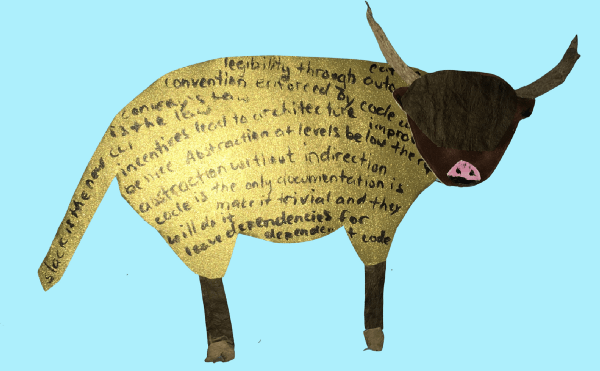 legibility through auto
can
convention enforced by code
Conway's Law
is the law
incentives lead to architecture
improv
be nice Abstraction at levels below the
abstraction without indirection
code is the only documentation
is
make it trivial and they
will do it
leave dependencies for
dependent code
slack is the new cli